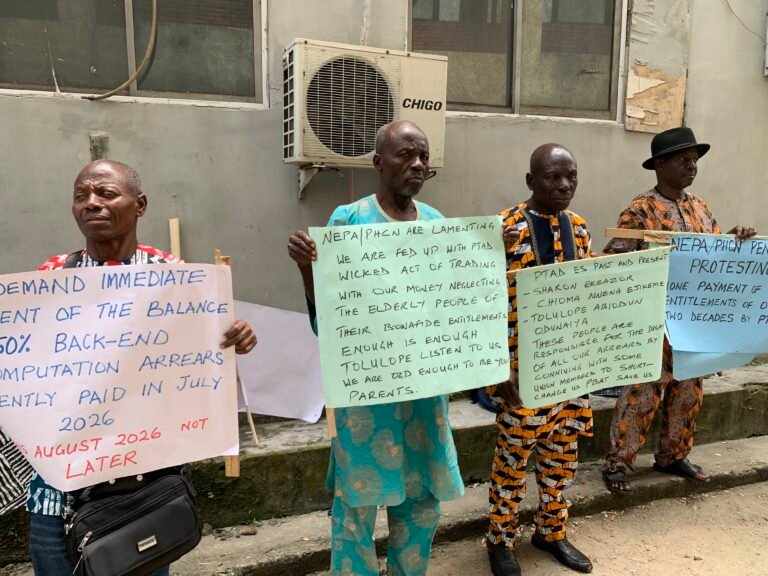 CHIGO
DEMAND IMMEDIATE
ENT OF THE BALANCE
50% BACK-END
COMPUTATION ARREARS
ENTLY PAID IN JULY
2026
AUGUST 2026 NOT
LATER
NEPA/PHCN ARE LAMENTING
WE ARE FED UP WITH PTAD
WICKED ACT OF TRADING
WITH OUR MONEY NEGLECTING
THE ELDERLY PEOPLE OF
THEIR BONAFIDE ENTITLEMENTS
ENOUGH IS ENOUGH
TOLULOPE LISTEN TO US
WE ARE OLD ENOUGH TO BE YOUR
PARENTS.
PTAD ES PAST AND PRESENT
- SHARON EKEAZOR
- CHIOMA NWENA EJIKEME
- TOLULOPE ABIODUN
ODUNAIYA
THESE PEOPLE ARE
RESPONSIBLE FOR THE DELA
OF ALL OUR ARREARS BY
CONNIVING WITH SOME
UNION MEMBERS TO SHORT-
CHANGE US PBAT SAVE US
NEPA/PHCN PEN
PROTESTING
ONE PAYMENT OF
ENTITLEMENTS OF O
TWO DECADES BY PT